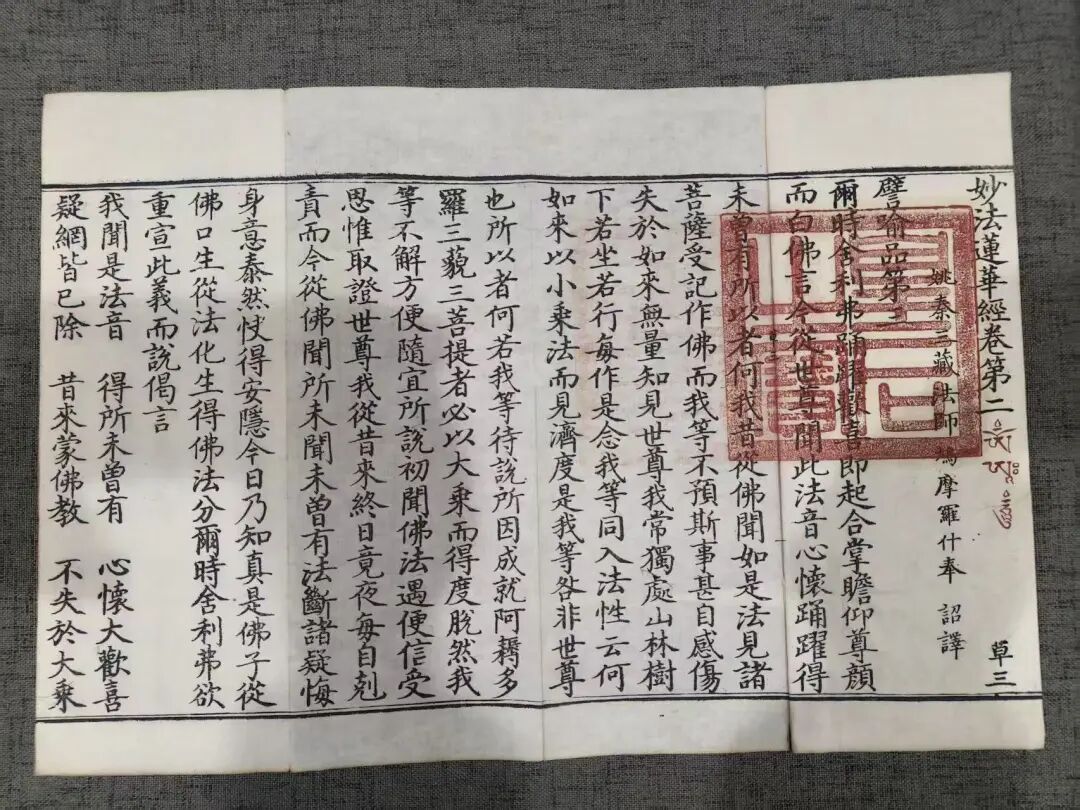 妙法蓮華經卷第二
草三
姚秦三藏法師鳩摩羅什奉 詔譯
譬喻品第三
爾時舍利弗踊躍歡喜即起合掌瞻仰尊顏
而白佛言今從世尊聞此法音心懷踊躍得
未曾有所以者何我昔從佛聞如是法見諸
菩薩受記作佛而我等不預斯事甚自感傷
失於如來無量知見世尊我常獨處山林樹
下若坐若行每作是念我等同入法性云何
如來以小乘法而見濟度是我等咎非世尊
也所以者何若我等待說所因成就阿耨多
羅三藐三菩提者必以大乘而得度脫然我
等不解方便隨宜所說初聞佛法遇便信受
思惟取證世尊我從昔來終日竟夜每自剋
責而今從佛聞所未聞未曾有法斷諸疑悔
身意泰然快得安隱今日乃知真是佛子從
佛口生從法化生得佛法分爾時舍利弗欲
重宣此義而說偈言
我聞是法音 得所未曾有 心懷大歡喜
疑網皆已除 昔來蒙佛教 不失於大乘